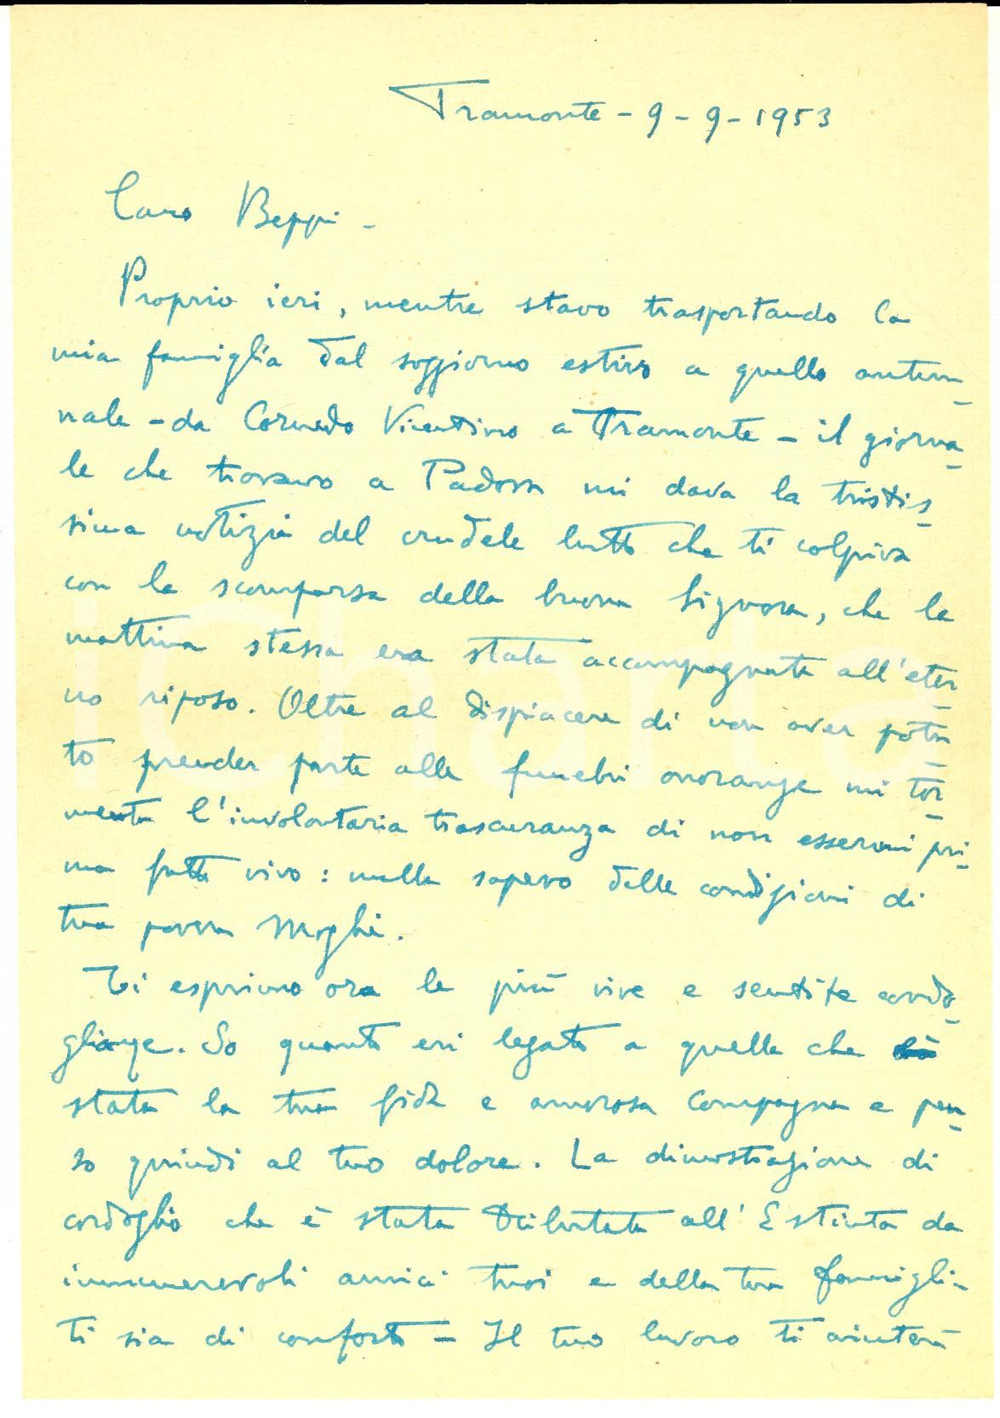 Tramonte - 9 - 9 - 1953
Caro Beppi -
Proprio ieri, mentre stavo trasportando la
mia famiglia dal soggiorno estivo a quello autun-
nale - da Cornedo Vicentino a Tramonte - il giorna-
le che trovavo a Padova mi dava la tristis-
sima notizia del crudele lutto che ti colpiva
con la scomparsa della buona Signora, che la
mattina stessa era stata accompagnata all'eter-
no riposo. Oltre al dispiacere di non aver potu-
to prender parte alle funebri onoranze mi tor-
menta l'involontaria trascuranza di non essermi pri-
ma fatto vivo: nulla sapevo delle condizioni di
tua povera Moglie.
Ti esprimo ora le più vive e sentite condo-
glianze. So quanto eri legato a quella che è
stata la tua fida e amorosa compagna e pen-
so quindi al tuo dolore. La dimostrazione di
cordoglio che è stata tributata all'Estinta da
innumerevoli amici tuoi e della tua famiglia
ti sia di conforto - Il tuo lavoro ti aiuterà
iCharta